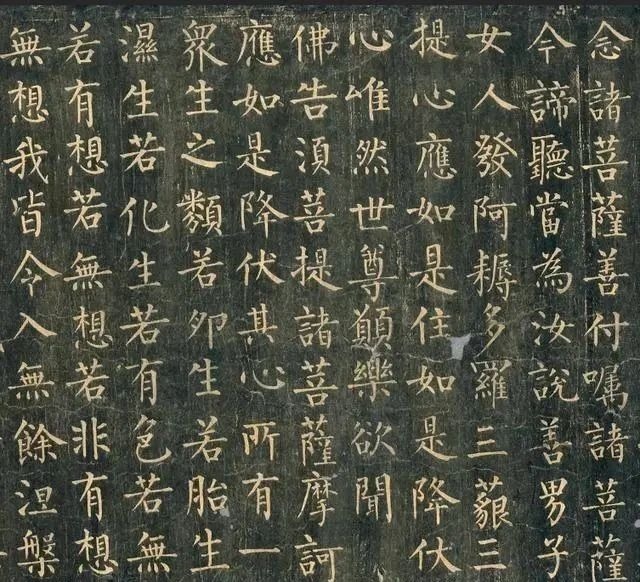 念諸菩薩善付囑諸菩薩
今諦聽當為汝說善男子
女人發阿耨多羅三藐三
提心應如是住如是降伏
心唯然世尊願樂欲聞
佛告須菩提諸菩薩摩訶
應如是降伏其心所有一
衆生之類若卵生若胎生
濕生若化生若有色若無
若有想若無想若非有想
無想我皆令入無餘涅槃